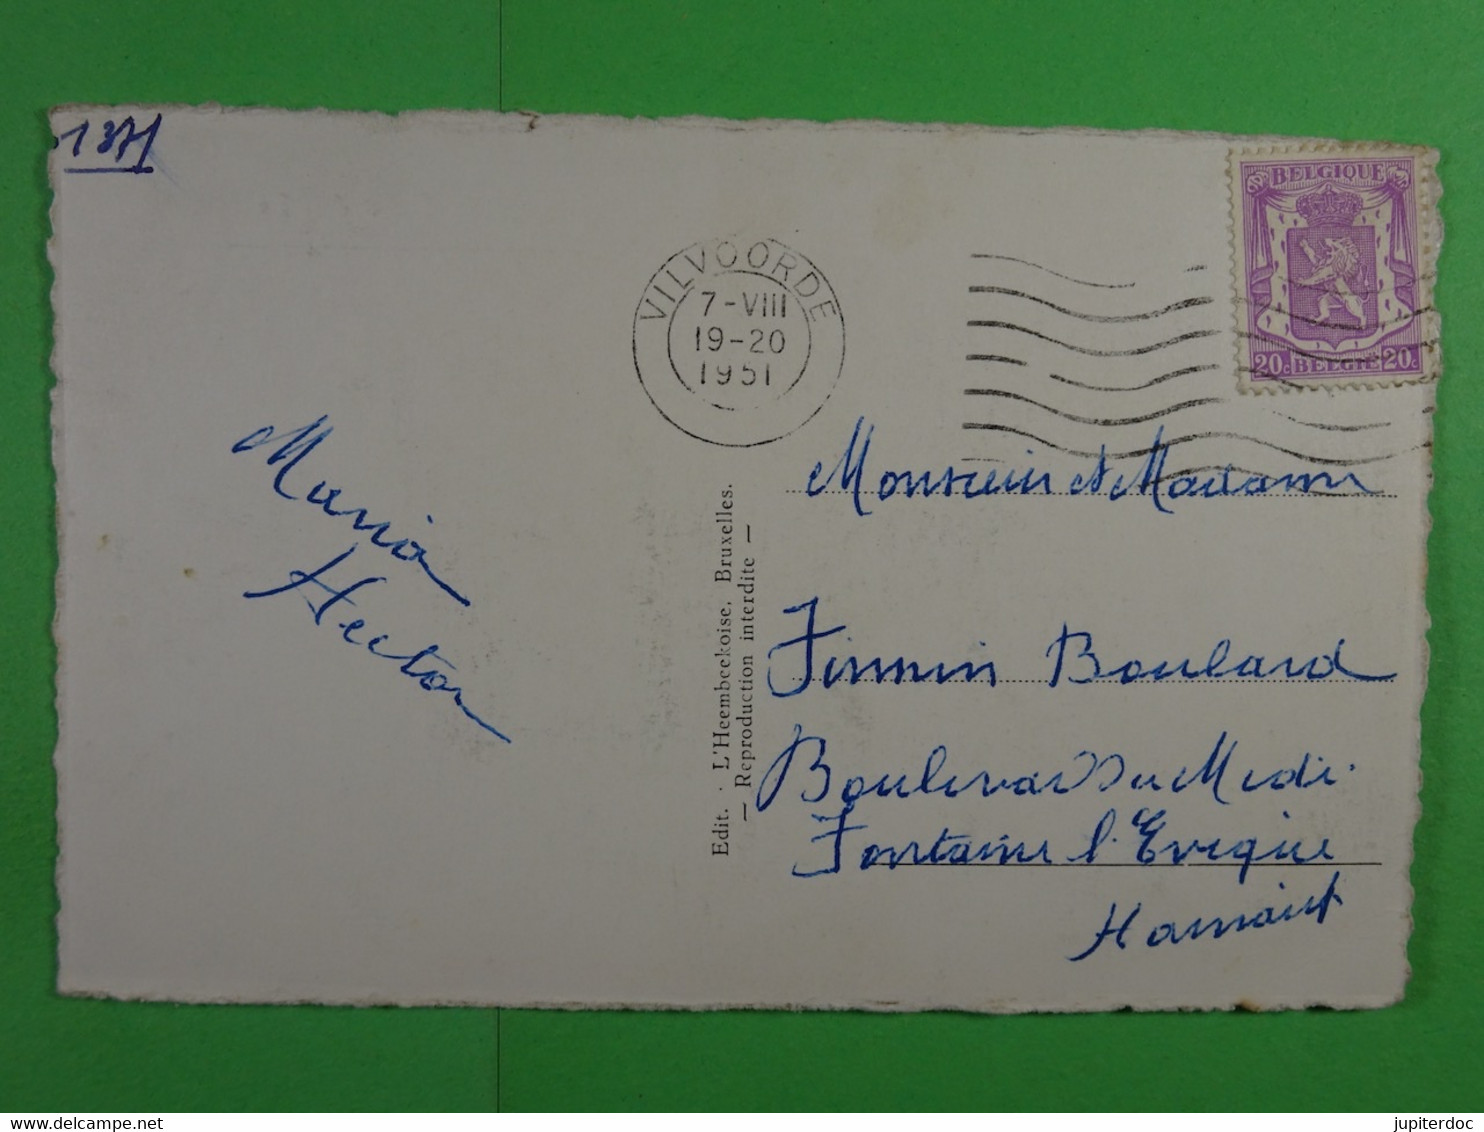 BELGIQUE
20c BELGIE 20c
VILVOORDE
7-VIII
19-20
1951
Maria
Hector
Edit. L'Heembeekoise, Bruxelles.
— Reproduction interdite —
Monsieur et Madame
Firmin Boulard
Boulevard du Midi.
Fontaine l'Evêque
Hainaut
jupiterdoc